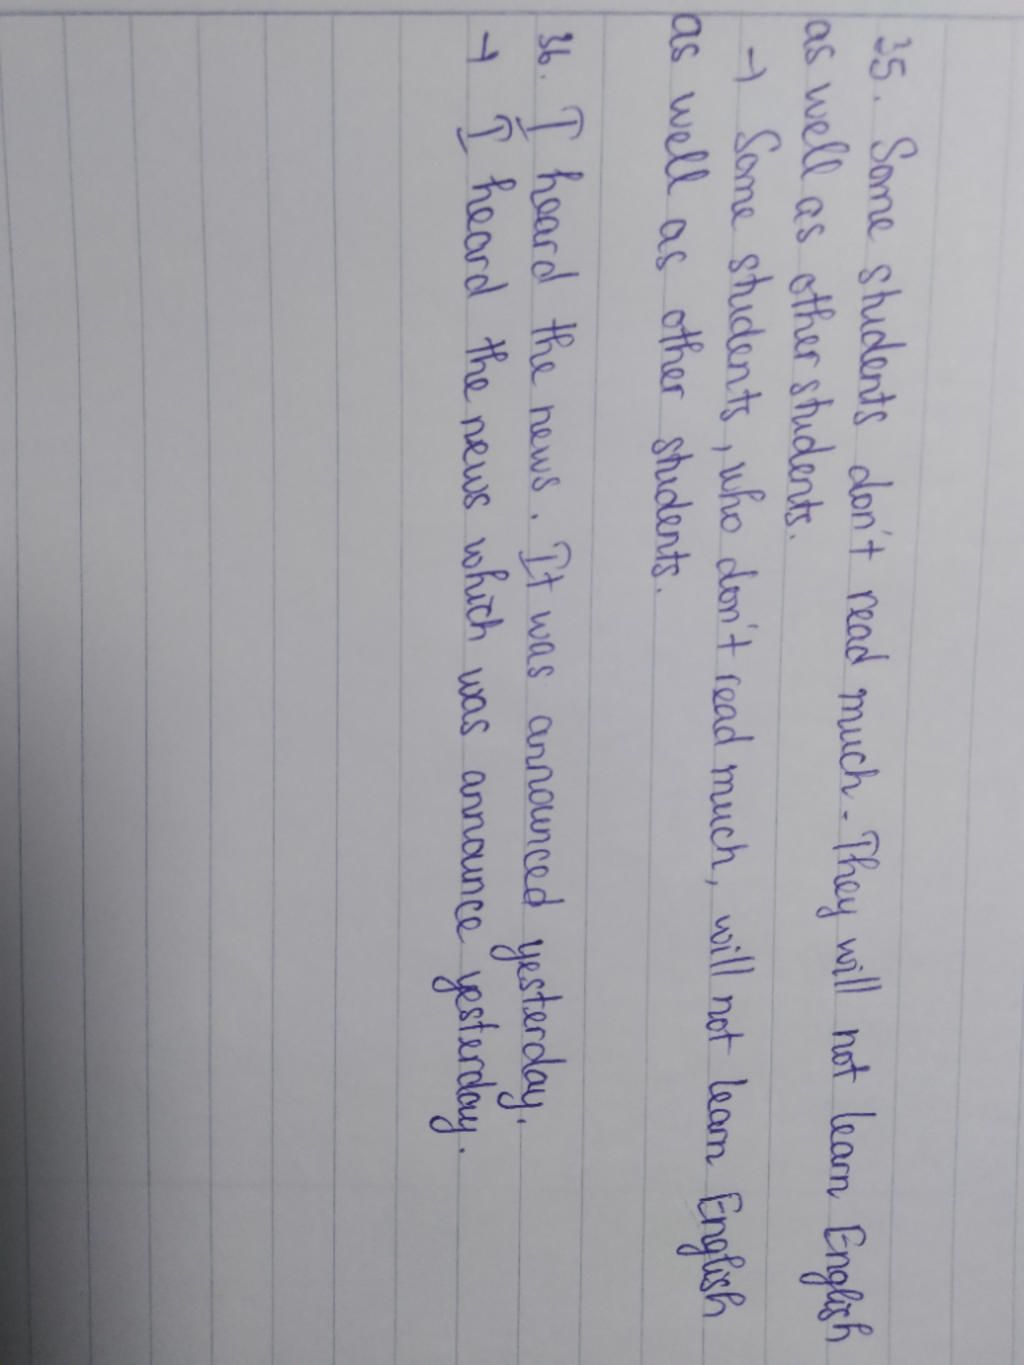 35. Some students don't read much. They will not learn English
as well as other students.
→ Some students, who don't read much, will not learn English
as well as other students.
36. I heard the news. It was announced yesterday.
→ I heard the news which was announce yesterday.